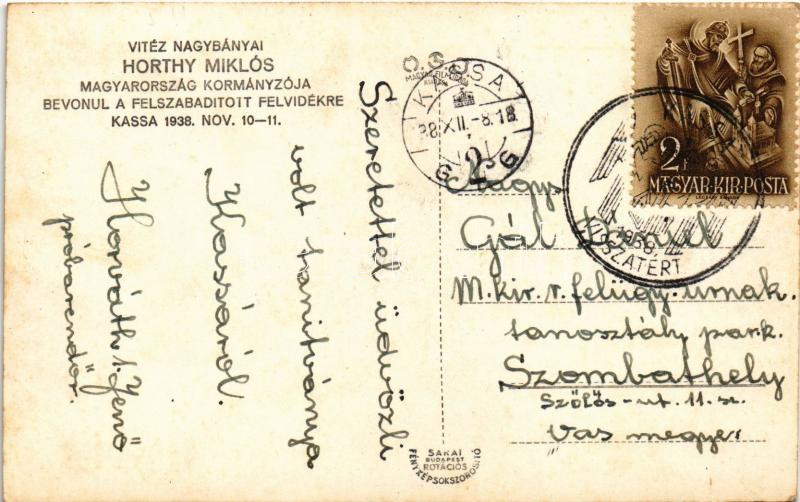 VITÉZ NAGYBÁNYAI
HORTHY MIKLÓS
MAGYARORSZÁG KORMÁNYZÓJA
BEVONUL A FELSZABADITOTT FELVIDÉKRE
KASSA 1938. NOV. 10—11.
Szeretettel üdvözli
volt tanitványa
Kassáról.
Horváth I. Jenő
próbarendőr.
KASSA
2
2f
MAGYAR·KIR·POSTA
1938
VISSZATÉRT
Nagys
Gál
M. kir. r. felügy. urnak.
tanosztály park.
Szombathely
Szőlős-ut. 11. sz.
Vas megye.
SAKAI
BUDAPEST
ROTÁCIÓS
FÉNYKÉPSOKSZOROSITÓ